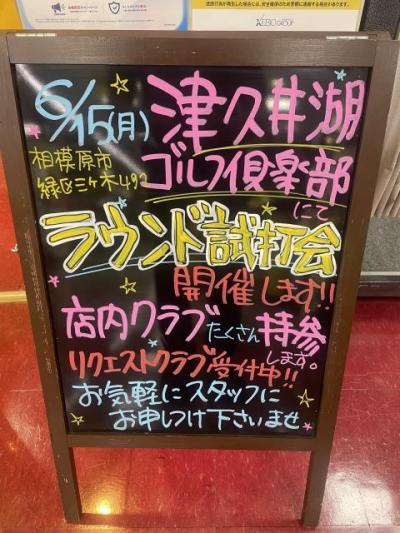 XEBIO GROUP
6/15(月)
津久井湖
相模原市
緑区三ヶ木492
ゴルフ倶楽部
にて
ラウンド試打会
開催します!!
店内クラブたくさん持参
します。
リクエストクラブ受付中!!
お気軽にスタッフに
お申しつけ下さいませ